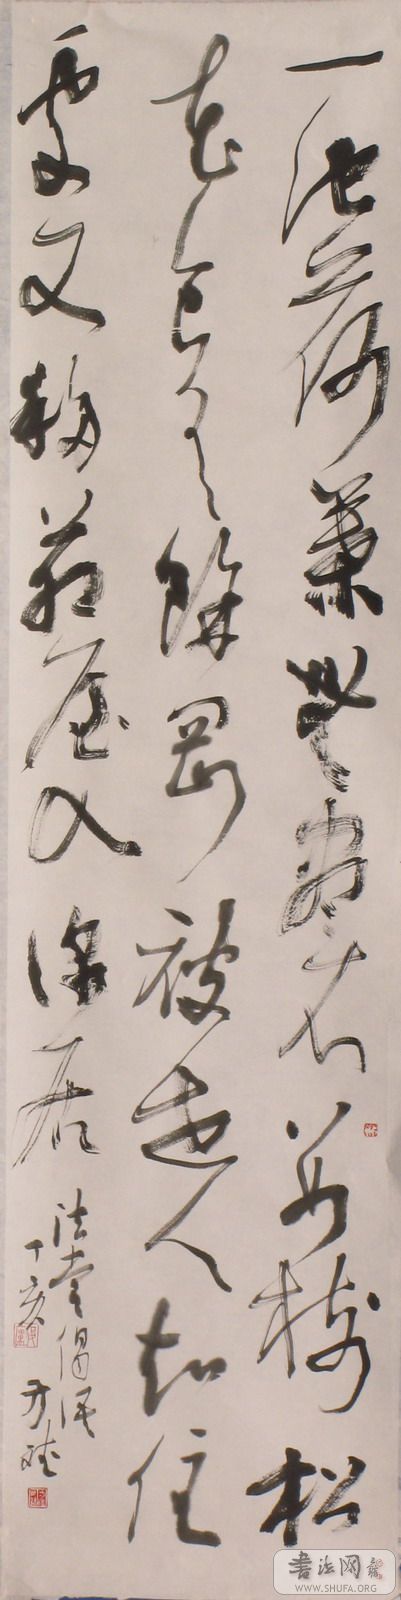 一池荷葉無盡數樹松
花食有餘剛被世人知住
處又移茅屋入深居
法常偈語
丁亥
書法网
WWW.SHUFA.ORG